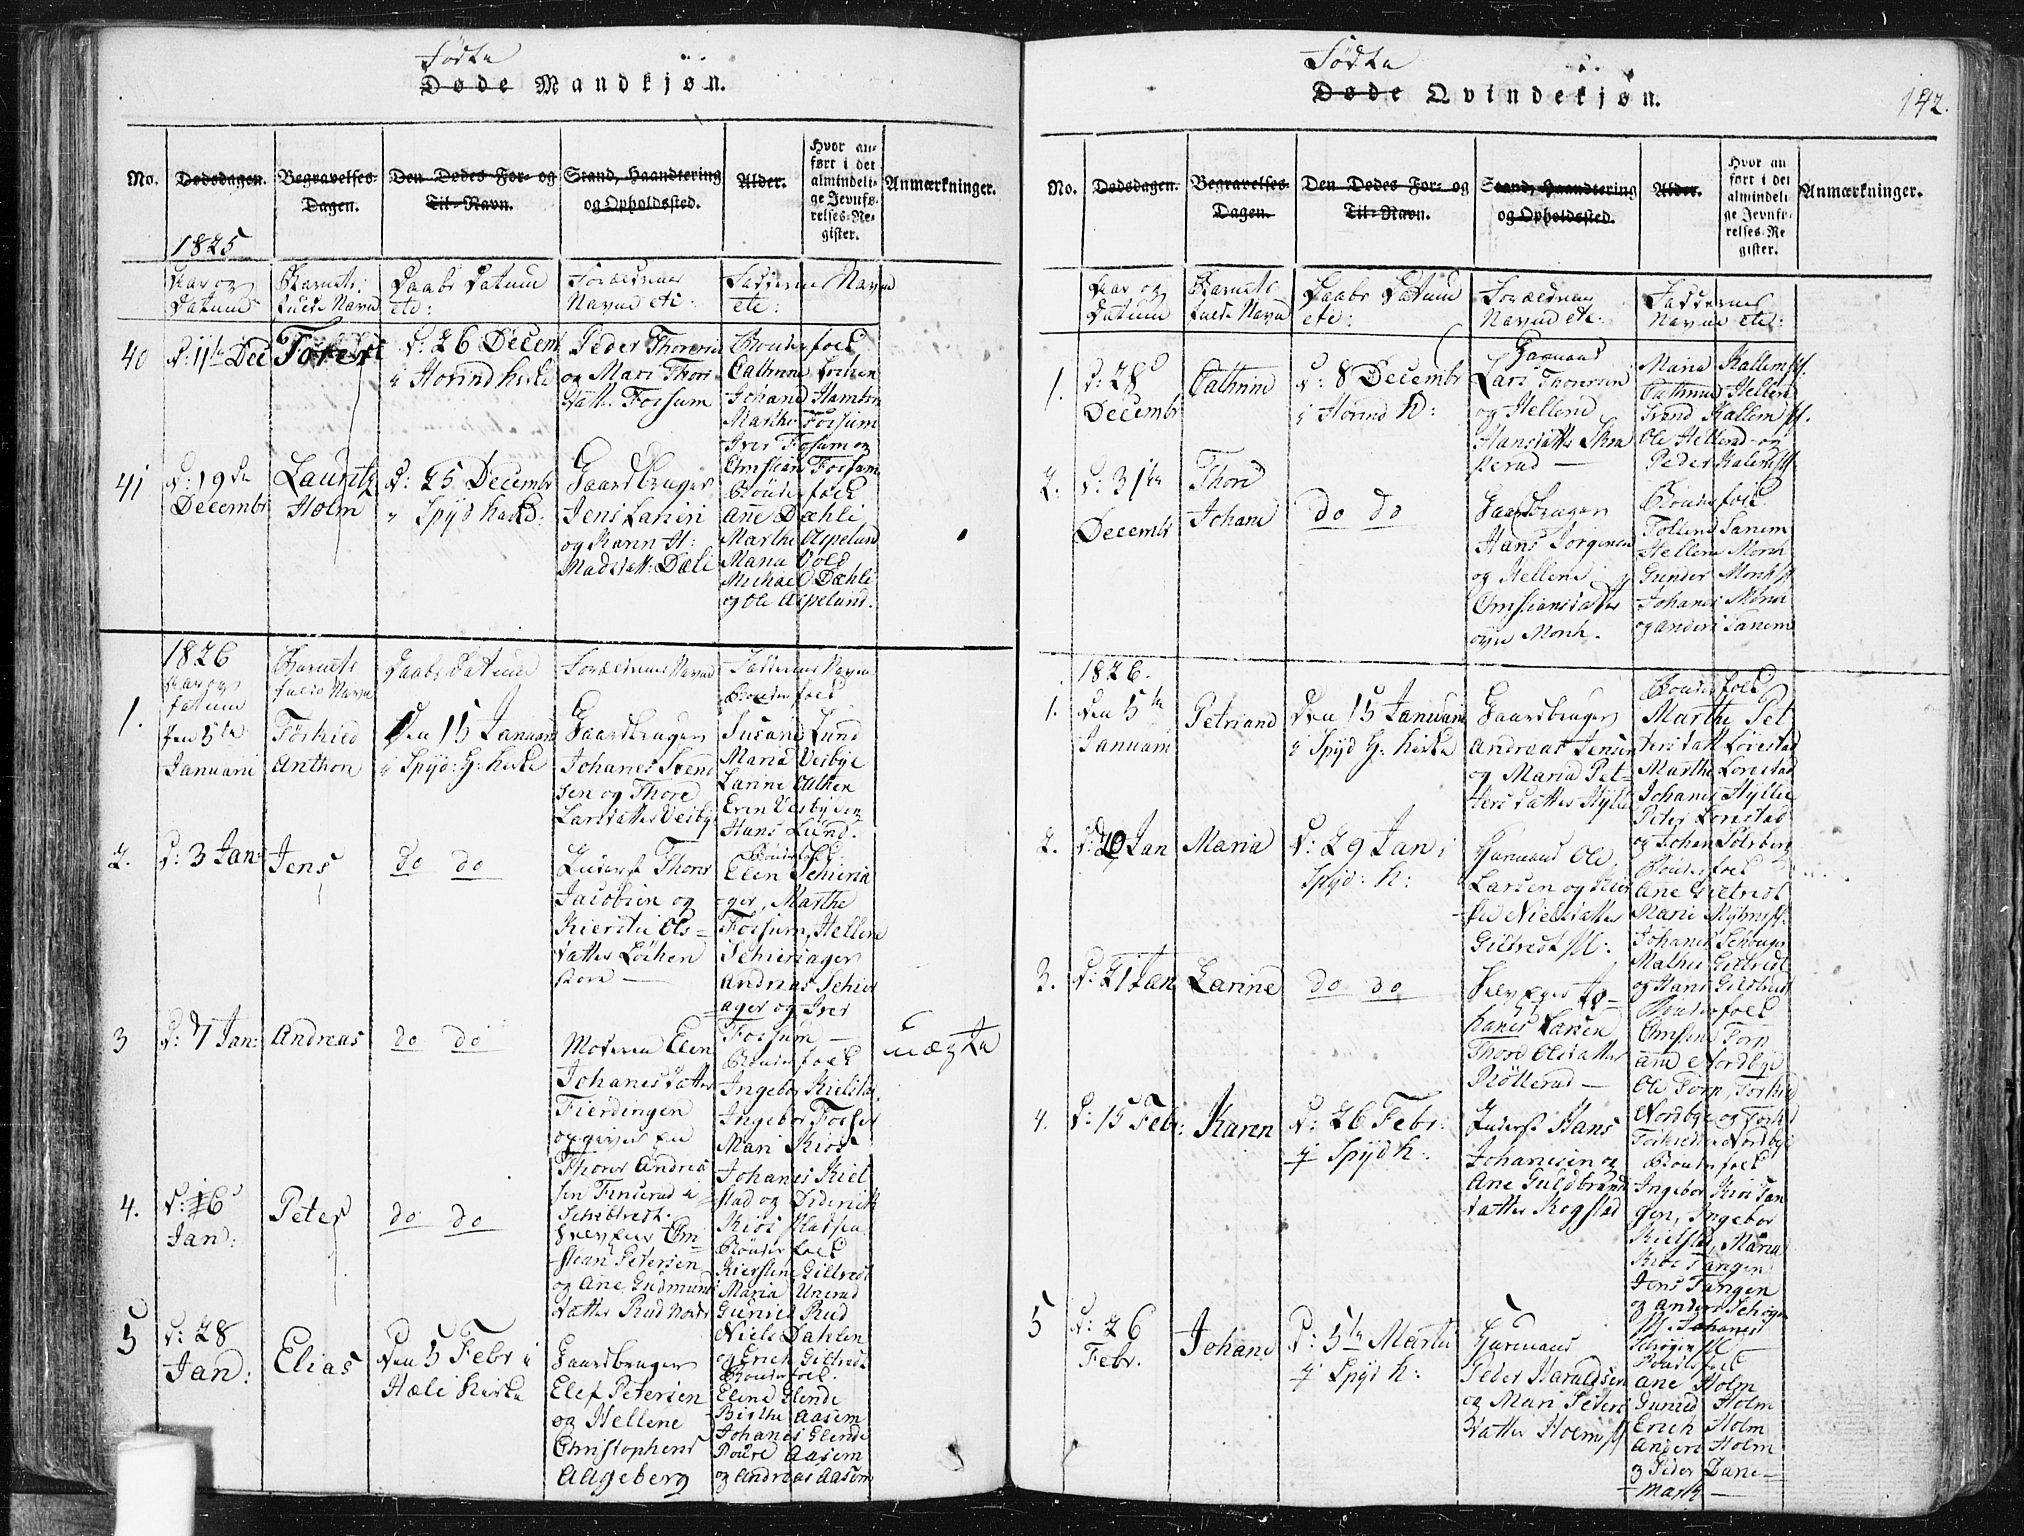 Födte
Døde Mandkjøn.
No.
Dødsdagen.
Begravelses-
Dagen.
Den Dødes For- og
Til-Navn.
Stand, Haandtering
og Opholdssted.
Alder.
Hvor an-
ført i det
almindeli-
ge Jevnfø-
relses-Re-
gister.
Anmærkninger.
1825
Aar og
Datum
Barnets
fulde Navn
Daabs Datum
etc:
Forældrenes
Navne etc:
Faddernes Navne
etc:
40
D: 11te Dec
Torer
D: 26 Decem
i Hovind Kirke
Peder Thoresen
og Mari Thors
Datt. Fossum
Bønderfolk
Cathrine Lochen
Johane
Marthe Fossum
Iver Fossum og
Christian Fossum
41
D: 19de
Decembr
Lauritz
Holm
D: 25 Decembr
i Spyd Kirke
Gaardbruger
Jens Larsen
og Karen H:
Madsdatt: Dæli
Bønderfolk
Ane Dæhli
Marthe Aspelund
Maria Vold
Michael Dæhli
og Ole Aspelund.
1826
Aar og
Datum
Barnets
fulde Navn
Daabs Datum
Forældrenes Navne
Faddernes Navne
1.
Den 5te
Januarii
Torkied
Anthon
Den 15 Januarii
i Spyd: G: Kirke
Gaardbruger
Johanes Svend
sen og Thore
Larsdatter Vesbye
Bønderfolk
Susane Lund
Maria Vesbye
Larine
Even Vesbye og
Hans Lund.
2.
D: 3 Jan:
Jens
do do
Inderst Thore
Jacobsen og
Kierstie Ols-
datter Löchen
Bønderfolk:
Elen Schieria
ger, Marthe
Fossum, Hellene
Schieriager
Andreas Schieri
ager og Iver
Fossum
3
D: 7 Jan:
Andreas
do do
Moderen Elen
Johanesdatter
Fierdingen
opgiver
Thores Andrea
sen
Bønderfolk
Ingebor Kielstad,
Ingebor Fosser
Mari Kios
Johanes Kiel
stad og Diderich
Kios
uægte
4.
D: 16
Jan:
Peter
do do
Selveier Chri-
stian Petersen
og Ane Gudmunds
datter Rud
Bønderfolk
Kierstine Giltvedt
Maria Unerud
Gunild Rud
Niels Dahlen
og Erich Giltvedt
5
D: 28
Jan:
Elias
Den 5 Febr i
Hæli Kirke
Gaardbruger
Elef Petersen
og Hellene
Christophers
Aageberg
Bønderfolk:
Elene Glende
Birthe Aasem
Johanes Glende
Povre Aasem
og Andreas Aasem
Födte
Døde Qvindekjøn.
142.
No.
Dødsdagen.
Begravelses-
Dagen.
Den Dødes For- og
Til-Navn.
Stand, Haandtering
og Opholdssted.
Alder.
Hvor an
ført i det
almindeli
ge Jevnfø-
relses-Re
gister.
Anmærkninger.
Aar og
Datum
Barnets
fulde Navn
Daabs Datum
etc:
Forældrenes
Navne etc:
Faddernes
Navne etc:
1.
D: 28
Decembr
Cathrine
D: 8 Decembr
i Hovind K:
Lars Thoresen
og Hellene
Hansdatter
Maria Kallem
Cathrine Hellerud
Svend Kallem
Ole Hellerud og
Peder Kalem
2.
D: 31te
Decembr
Thore
Johane
do do
Gaardbruger
Hans Jorgensen
og Hellene
Christiansdatter
Monk.
Bønderfolk
Hellene Monk
Gunder Monk
Johanes Monk
og Anders Sanem
1826.
1.
Den 5te
Januarii
Petriane
Den 15 Januarii
i Spyd G: Kirke
Gaardbruger
Andreas Jensen
og Maria Pet-
ters datter Hylie
Bønderfolk
Marthe Pet
tersdatt Lörestad
Marthe Lorestad
Johanes Hyllie
Peter Lorestad
og Johan Solsberg
2.
D: 20 Jan
Maria
D: 29 Jan i
Spyd: K:
Huusmand Ole
Larsen og Kier
stie Nielsdatter
Giltvedt
Bønderfolk
Ane Gietvedt
Marie
Johanes Schouger
Mathis Gietvedt
og Hans
3.
D: 21 Jan
Larine
do do
Selveier Jo-
hanes Larsen
Thore Olsdatter
Bønderfolk
Christian Torp
Ane Nordbye
Ole Torp, Torkied
Nordbye og Torkied
Torkiedsen Nordbye
4.
D: 15 Febr:
Karen
D: 26 Febr:
i Spyd K:
Inderst Hans
Johanesen og
Ane Guldbrands
datter Kogstad
Bønderfolk
Ingebor Kios Tan
gen, Ingebor
Kielstad, Maria
Kios Tangen
Jens Tangen
og Anders Schogen
Johanes
Schogen
5
D: 26
Febr.
Johane
D: 5te Martii
i Spyd K:
Huusmand
Peder Haraldsen
og Mari Peders
datter Holm
Bønderfolk
Ane Holm
Gunild Holm
Erich Holm
Anders Holm
og Peder Dane-
mark